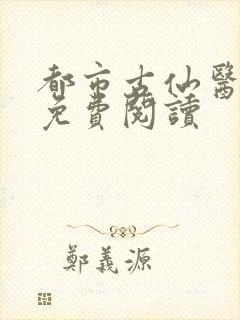 都市古仙醫
免費閱讀
鄭義源